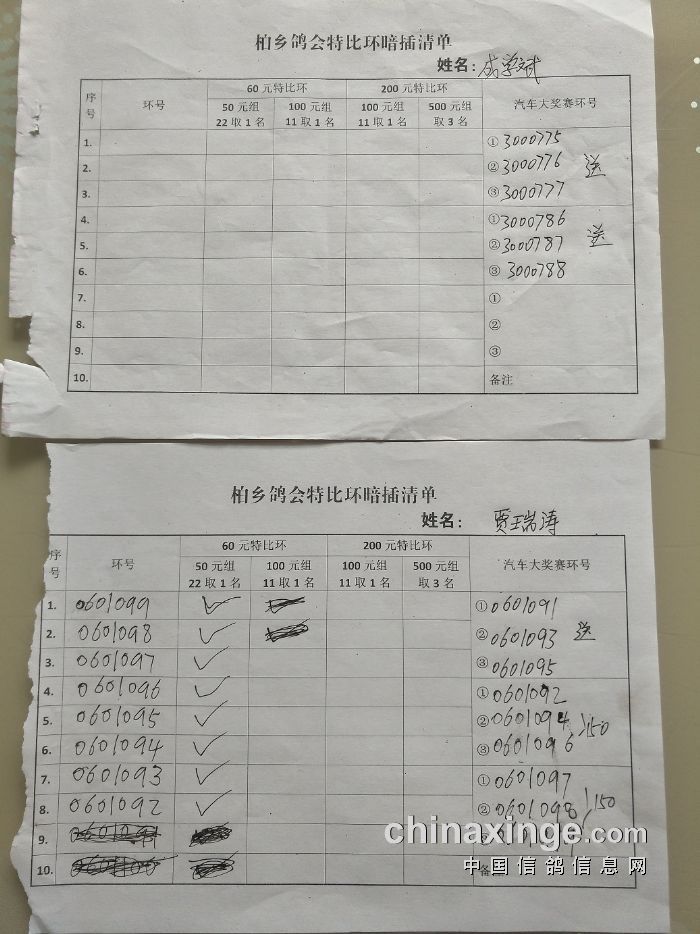 柏乡鸽会特比环暗插清单
姓名：成学斌
序号 环号 60元特比环 200元特比环 汽车大奖赛环号
50元组 22取1名 100元组 11取1名 100元组 11取1名 500元组 取3名
1. ①3000775
2. ②3000776 送
3. ③3000777
4. ①3000786
5. ②3000787 送
6. ③3000788
7. ①
8. ②
9. ③
10. 备注
柏乡鸽会特比环暗插清单
姓名：贾瑞涛
序号 环号 60元特比环 200元特比环 汽车大奖赛环号
50元组 22取1名 100元组 11取1名 100元组 11取1名 500元组 取3名
1. 0601099 ✓ ①0601091
2. 0601098 ✓ ②0601093 送
3. 0601097 ✓ ③0601095
4. 0601096 ✓ ①0601092
5. 0601095 ✓ ②0601094 150
6. 0601094 ✓ ③0601096
7. 0601093 ✓ ①0601097
8. 0601092 ✓ ②0601098 150
9.
10. 备
chinaxinge.com
中国信鸽信息网